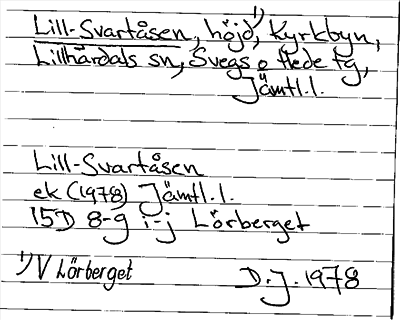 Lill-Svartåsen, höjd¹⁾, Kyrkbyn,
Lillhärdals sn, Svegs o Hede tg,
Jämtl.l.
Lill-Svartåsen
ek (1978) Jämtl.l.
15D 8-g i-j Lörberget
¹⁾ V Lörberget
D.J. 1978